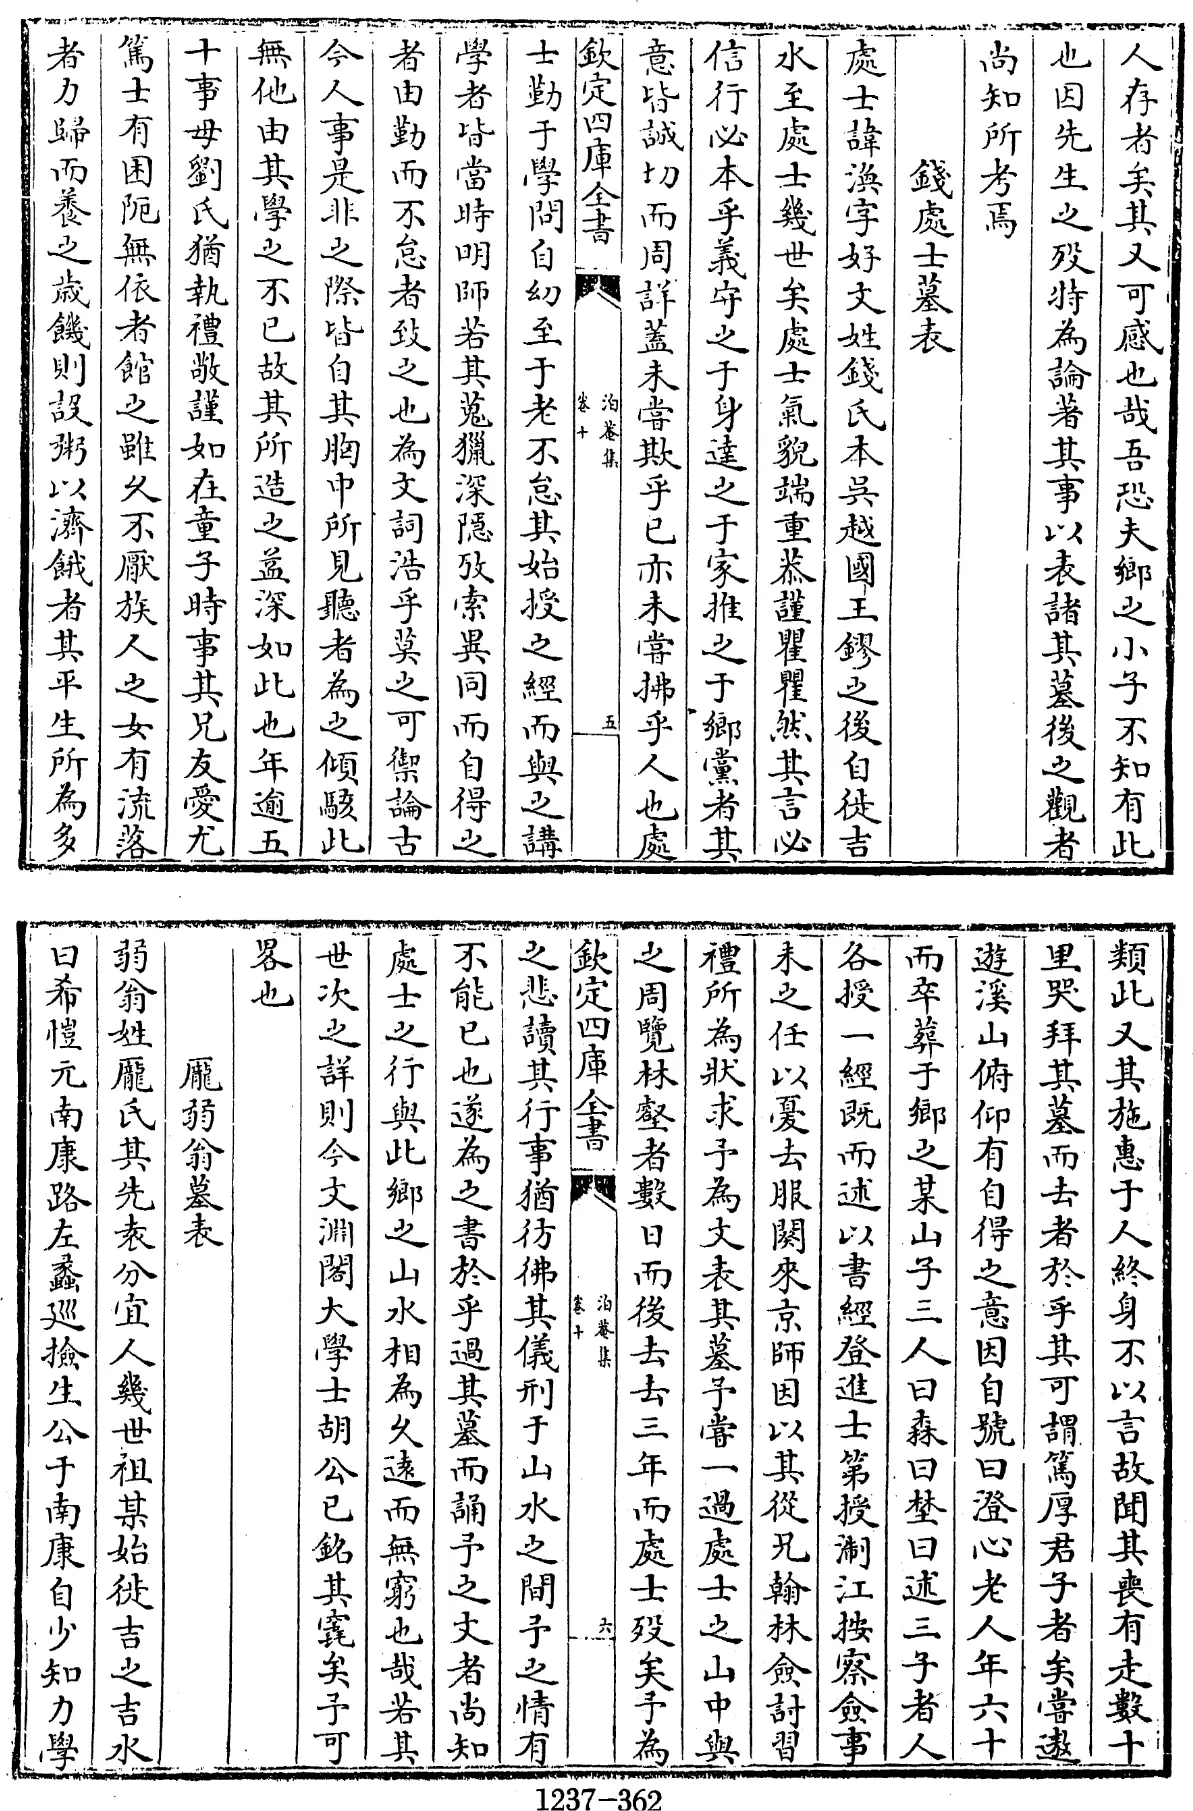 人存者矣其又可感也哉吾恐夫鄉之小子不知有此
也因先生之歿特為論著其事以表諸其墓後之觀者
尚知所考焉
錢處士墓表
處士諱渙字好文姓錢氏本吳越國王鏐之後自徙吉
水至處士幾世矣處士氣貌端重恭謹瞿瞿然其言必
信行必本乎義守之于身達之于家推之于鄉黨者其
意皆誠切而周詳蓋未嘗欺乎已亦未嘗拂乎人也處
欽定四庫全書
泊菴集
卷十
五
士勤于學問自幼至于老不怠其始授之經而與之講
學者皆當時明師若其蒐獵深隱攷索異同而自得之
者由勤而不怠者致之也為文詞浩乎莫之可禦論古
今人事是非之際皆自其胸中所見聽者為之傾駭此
無他由其學之不已故其所造之益深如此也年逾五
十事母劉氏猶執禮敬謹如在童子時事其兄友愛尤
篤士有困阨無依者館之雖久不厭族人之女有流落
者力歸而養之歲饑則設粥以濟餓者其平生所為多
類此又其施惠于人終身不以言故聞其喪有走數十
里哭拜其墓而去者於乎其可謂篤厚君子者矣嘗遨
遊溪山俯仰有自得之意因自號曰澄心老人年六十
而卒葬于鄉之某山子三人曰森曰埜曰述三子者人
各授一經既而述以書經登進士第授淛江按察僉事
未之任以憂去服闋來京師因以其從兄翰林僉討習
禮所為狀求予為文表其墓予嘗一過處士之山中與
之周覽林壑者數日而後去去三年而處士歿矣予為
欽定四庫全書
泊菴集
卷十
六
之悲讀其行事猶彷彿其儀刑于山水之間予之情有
不能已也遂為之書於乎過其墓而誦予之文者尚知
處士之行與此鄉之山水相為久遠而無窮也哉若其
世次之詳則今文淵閣大學士胡公已銘其窀矣予可
畧也
龎弱翁墓表
弱翁姓龎氏其先袁分宜人幾世祖某始徙吉之吉水
曰希愷元南康路左蠡巡撿生公于南康自少知力學
1237-362